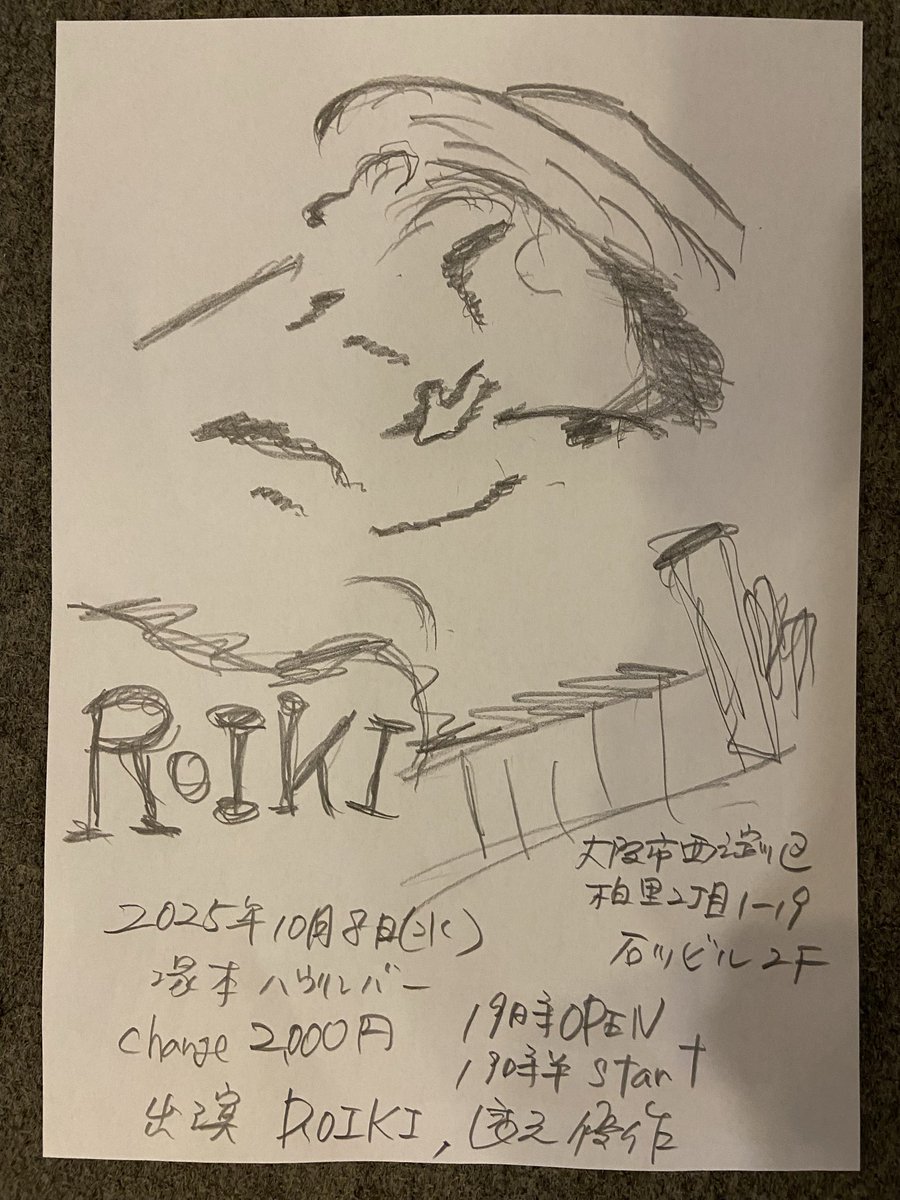 ROIKI
大阪市西淀川区
柏里2丁目1-19
石川ビル2F
2025年10月8日(水)
塚本 ハウリンバー
charge 2,000円
19時OPEN
19時半 start
出演 ROIKI, 修作